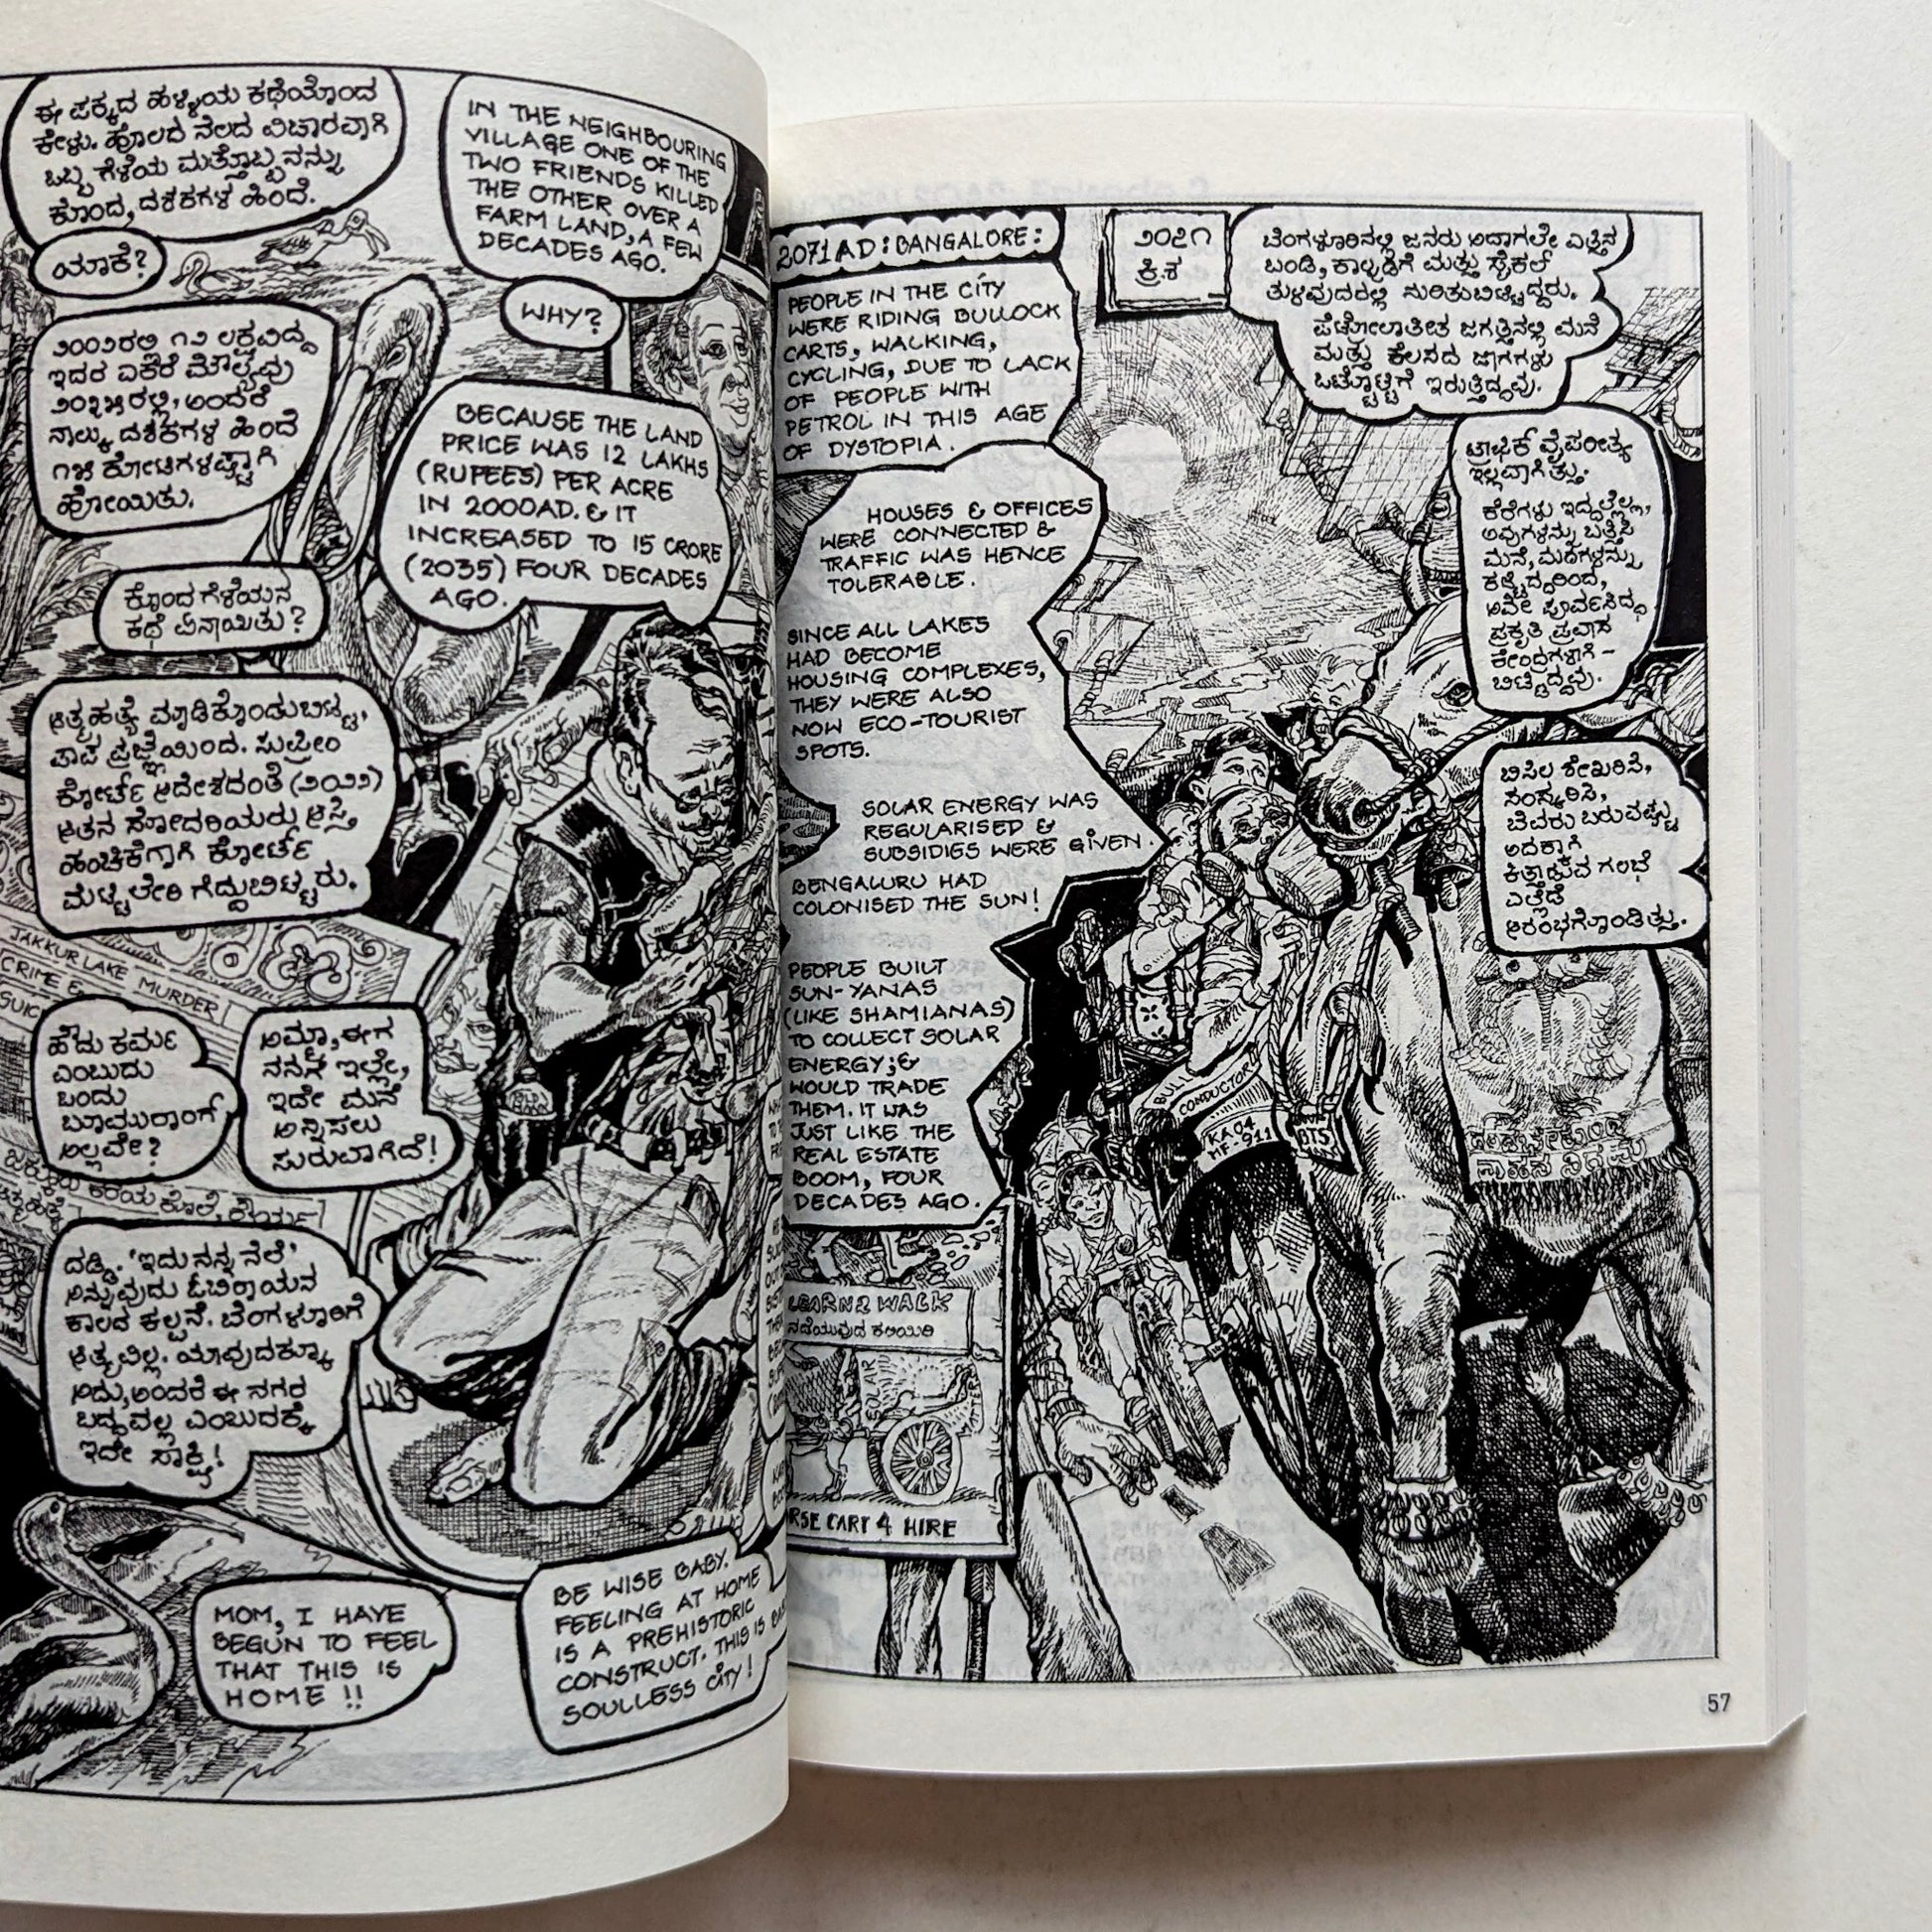 ಈ ಪಕ್ಕದ ಹಳ್ಳಿಯ ಕಥೆಯೊಂದ
ಕೇಳು. ಹೊಲದ ನೆಲದ ವಿಚಾರವಾಗಿ
ಒಬ್ಬ ಗೆಳೆಯ ಮತ್ತೊಬ್ಬನನ್ನು
ಕೊಂದ, ದಶಕಗಳ ಹಿಂದೆ.
IN THE NEIGHBOURING
VILLAGE ONE OF THE
TWO FRIENDS KILLED
THE OTHER OVER A
FARM LAND, A FEW
DECADES AGO.
ಯಾಕೆ?
WHY?
೨೦೦೨ರಲ್ಲಿ ೧೨ ಲಕ್ಷವಿದ್ದ
ಇದರ ಎಕರೆ ಮೌಲ್ಯವು
೨೦೩೫ರಲ್ಲಿ, ಅಂದರೆ
ನಾಲ್ಕು ದಶಕಗಳ ಹಿಂದೆ
೧೫ ಕೋಟಿಗಳಷ್ಟಾಗಿ
ಹೋಯಿತು.
BECAUSE THE LAND
PRICE WAS 12 LAKHS
(RUPEES) PER ACRE
IN 2000AD. & IT
INCREASED TO 15 CRORE
(2035) FOUR DECADES
AGO.
ಕೊಂದ ಗೆಳೆಯನ
ಕಥೆ ಏನಾಯಿತು?
ಆತ್ಮಹತ್ಯೆ ಮಾಡಿಕೊಂಡುಬಿಟ್ಟ,
ಪಾಪ ಪ್ರಜ್ಞೆಯಿಂದ. ಸುಪ್ರೀಂ
ಕೋರ್ಟ್ ಆದೇಶದಂತೆ (೨೦೨೨)
ಆತನ ಸೋದರಿಯರು ಆಸ್ತಿ
ಹಂಚಿಕೆಗಾಗಿ ಕೋರ್ಟ್
ಮಟ್ಟಲೇರಿ ಗೆದ್ದುಬಿಟ್ಟರು.
JAKKUR LAKE MURDER
CRIME &
SUIC
ಹೌದು ಕರ್ಮ
ಎಂಬುದು
ಒಂದು
ಬೂಮರಾಂಗ್
ಅಲ್ಲವೇ?
ಅಮ್ಮಾ, ಈಗ
ನನಗೆ ಇಲ್ಲೇ,
ಇದೇ ಮನೆ
ಅನ್ನಿಸಲು
ಸುರುವಾಗಿದೆ!
ಕೆರೆಯ ಕೊಲೆ, ಕ್ರೌರ್ಯ
ದಡ್ಡಿ. 'ಇದು ನನ್ನ ನೆಲೆ'
ಅನ್ನುವುದು ಓಬಿರಾಯನ
ಕಾಲದ ಕಲ್ಪನೆ. ಬೆಂಗಳೂರಿಗೆ
ಆತ್ಮವಿಲ್ಲ. ಯಾವುದಕ್ಕೂ
ಅದು, ಅಂದರೆ ಈ ನಗರ
ಬದ್ಧವಲ್ಲ ಎಂಬುದಕ್ಕೆ
ಇದೇ ಸಾಕ್ಷಿ!
MOM, I HAVE
BEGUN TO FEEL
THAT THIS IS
HOME !!
BE WISE BABY.
FEELING AT HOME
IS A PREHISTORIC
CONSTRUCT. THIS IS
SOULLESS CITY!
2071 AD: BANGALORE:
PEOPLE IN THE CITY
WERE RIDING BULLOCK
CARTS, WALKING,
CYCLING, DUE TO LACK
OF PEOPLE WITH
PETROL IN THIS AGE
OF DYSTOPIA.
HOUSES & OFFICES
WERE CONNECTED &
TRAFFIC WAS HENCE
TOLERABLE.
SINCE ALL LAKES
HAD BECOME
HOUSING COMPLEXES,
THEY WERE ALSO
NOW ECO-TOURIST
SPOTS.
SOLAR ENERGY WAS
REGULARISED &
SUBSIDIES WERE GIVEN.
BENGALURU HAD
COLONISED THE SUN!
PEOPLE BUILT
SUN-YANAS
(LIKE SHAMIANAS)
TO COLLECT SOLAR
ENERGY; &
WOULD TRADE
THEM. IT WAS
JUST LIKE THE
REAL ESTATE
BOOM, FOUR
DECADES AGO.
೨೦೭೧
ಕ್ರಿ.ಶ
ಬೆಂಗಳೂರಿನಲ್ಲಿ ಜನರು ಅದಾಗಲೇ ಎತ್ತಿನ
ಬಂಡಿ, ಕಾಲ್ನಡಿಗೆ ಮತ್ತು ಸೈಕಲ್
ತುಳಿವುದರಲ್ಲಿ ಸುರಿತುಬಿಟ್ಟಿದ್ದರು.
ಪೆಟ್ರೋಲಾತೀತ ಜಗತ್ತಿನಲ್ಲಿ ಮನೆ
ಮತ್ತು ಕೆಲಸದ ಜಾಗಗಳು
ಒಟ್ಟೊಟ್ಟಿಗೆ ಇರುತ್ತಿದ್ದವು.
ಟ್ರಾಫಿಕ್ ವೈಪರೀತ್ಯ
ಇಲ್ಲವಾಗಿತ್ತು.
ಕೆರೆಗಳು ಇದ್ದಲ್ಲೆಲ್ಲಾ,
ಅವುಗಳನ್ನು ಬತ್ತಿಸಿ
ಮನೆ, ಮಠಗಳನ್ನು
ಕಟ್ಟಿದ್ದರಿಂದ,
ಅವೇ ಪೂರ್ವಸಿದ್ಧ
ಪ್ರಕೃತಿ ಪ್ರವಾಸ
ಕೇಂದ್ರಗಳಾಗಿ-
ಬಿಟ್ಟಿದ್ದವು.
ಬಿಸಿಲ ಶೇಖರಿಸಿ,
ಸಂಸ್ಕರಿಸಿ,
ಬೆವರು ಬರುವಷ್ಟು
ಅದಕ್ಕಾಗಿ
ಕಿತ್ತಾಡುವ ಗಲಭೆ
ಎಲ್ಲೆಡೆ
ಆರಂಭಗೊಂಡಿತ್ತು.
BULL
CONDUCTOR
KA 04
MF-911
BTS
LEARN 2 WALK
ನಡೆಯುವುದ ಕಲಿಯಿರಿ
SOLAR
RSE CART 4 HIRE
57